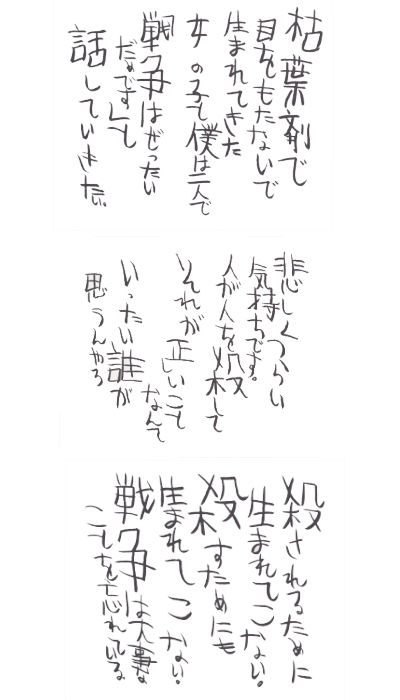 枯葉剤で
目をもたないで
生まれてきた
女の子と僕は二人で
戦争はぜったい
だめですと
話していきたい。
悲しくつらい
気持ちです。
人が人を殺して
それが正しいこと
なんて
いったい誰が
思うんやろ
殺されるために
生まれてこない。
殺すためにも
生まれてこない。
戦争は大事な
ことを忘れている